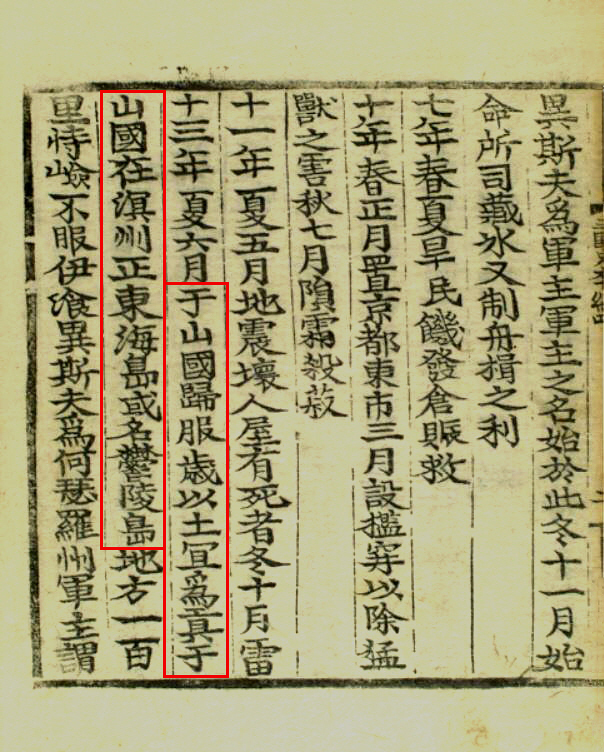 異斯夫爲軍主軍主之名始於此冬十一月始
命所司藏氷又制舟揖之利
七年春夏旱民饑發倉賑救
十年春正月置京都東市三月設檻穽以除猛
獸之害秋七月隕霜殺菽
十一年夏五月地震壞人屋有死者冬十月雷
十三年夏六月于山國歸服歲以土宜爲貢于
山國在溟州正東海島或名鬱陵島地方一百
里恃嶮不服伊飡異斯夫爲何瑟羅州軍主謂